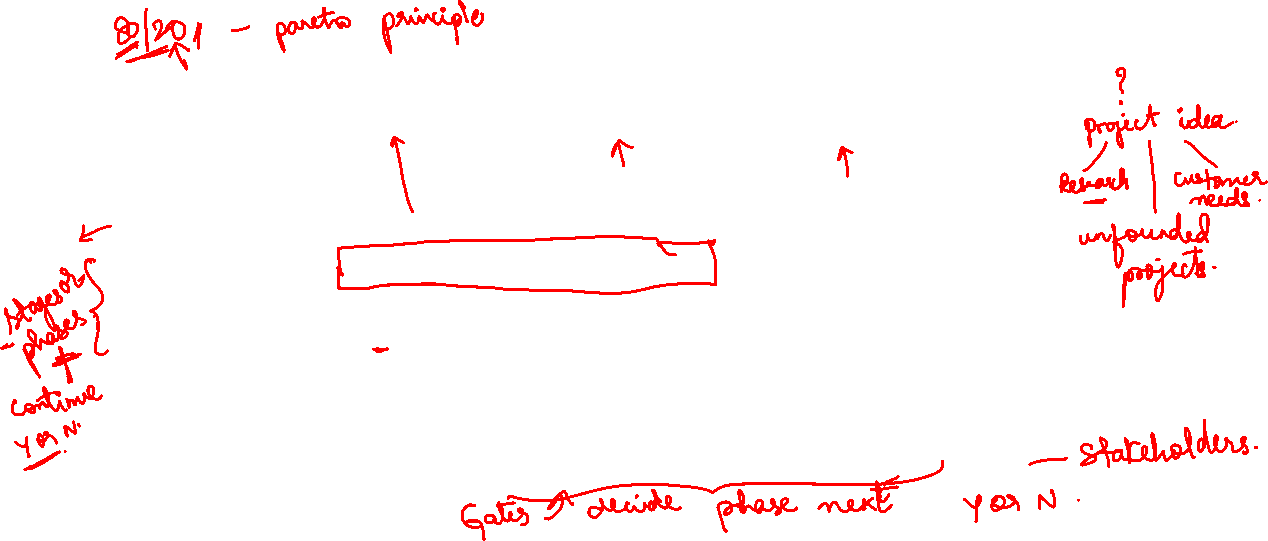 80/20, - pareto principle
?
project idea.
Research
customer needs.
unfounded projects.
- stages or phases
+
continue
Y or N.
- stakeholders.
Gates → decide phase next Y or N.